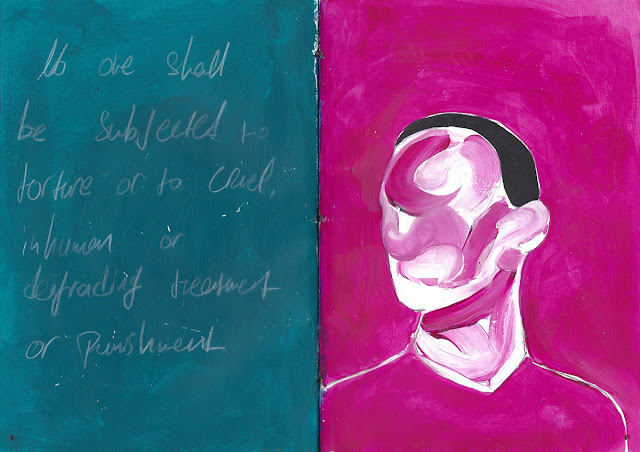 No one shall
be subjected to
torture or to cruel,
inhuman or
degrading treatment
or Punishment